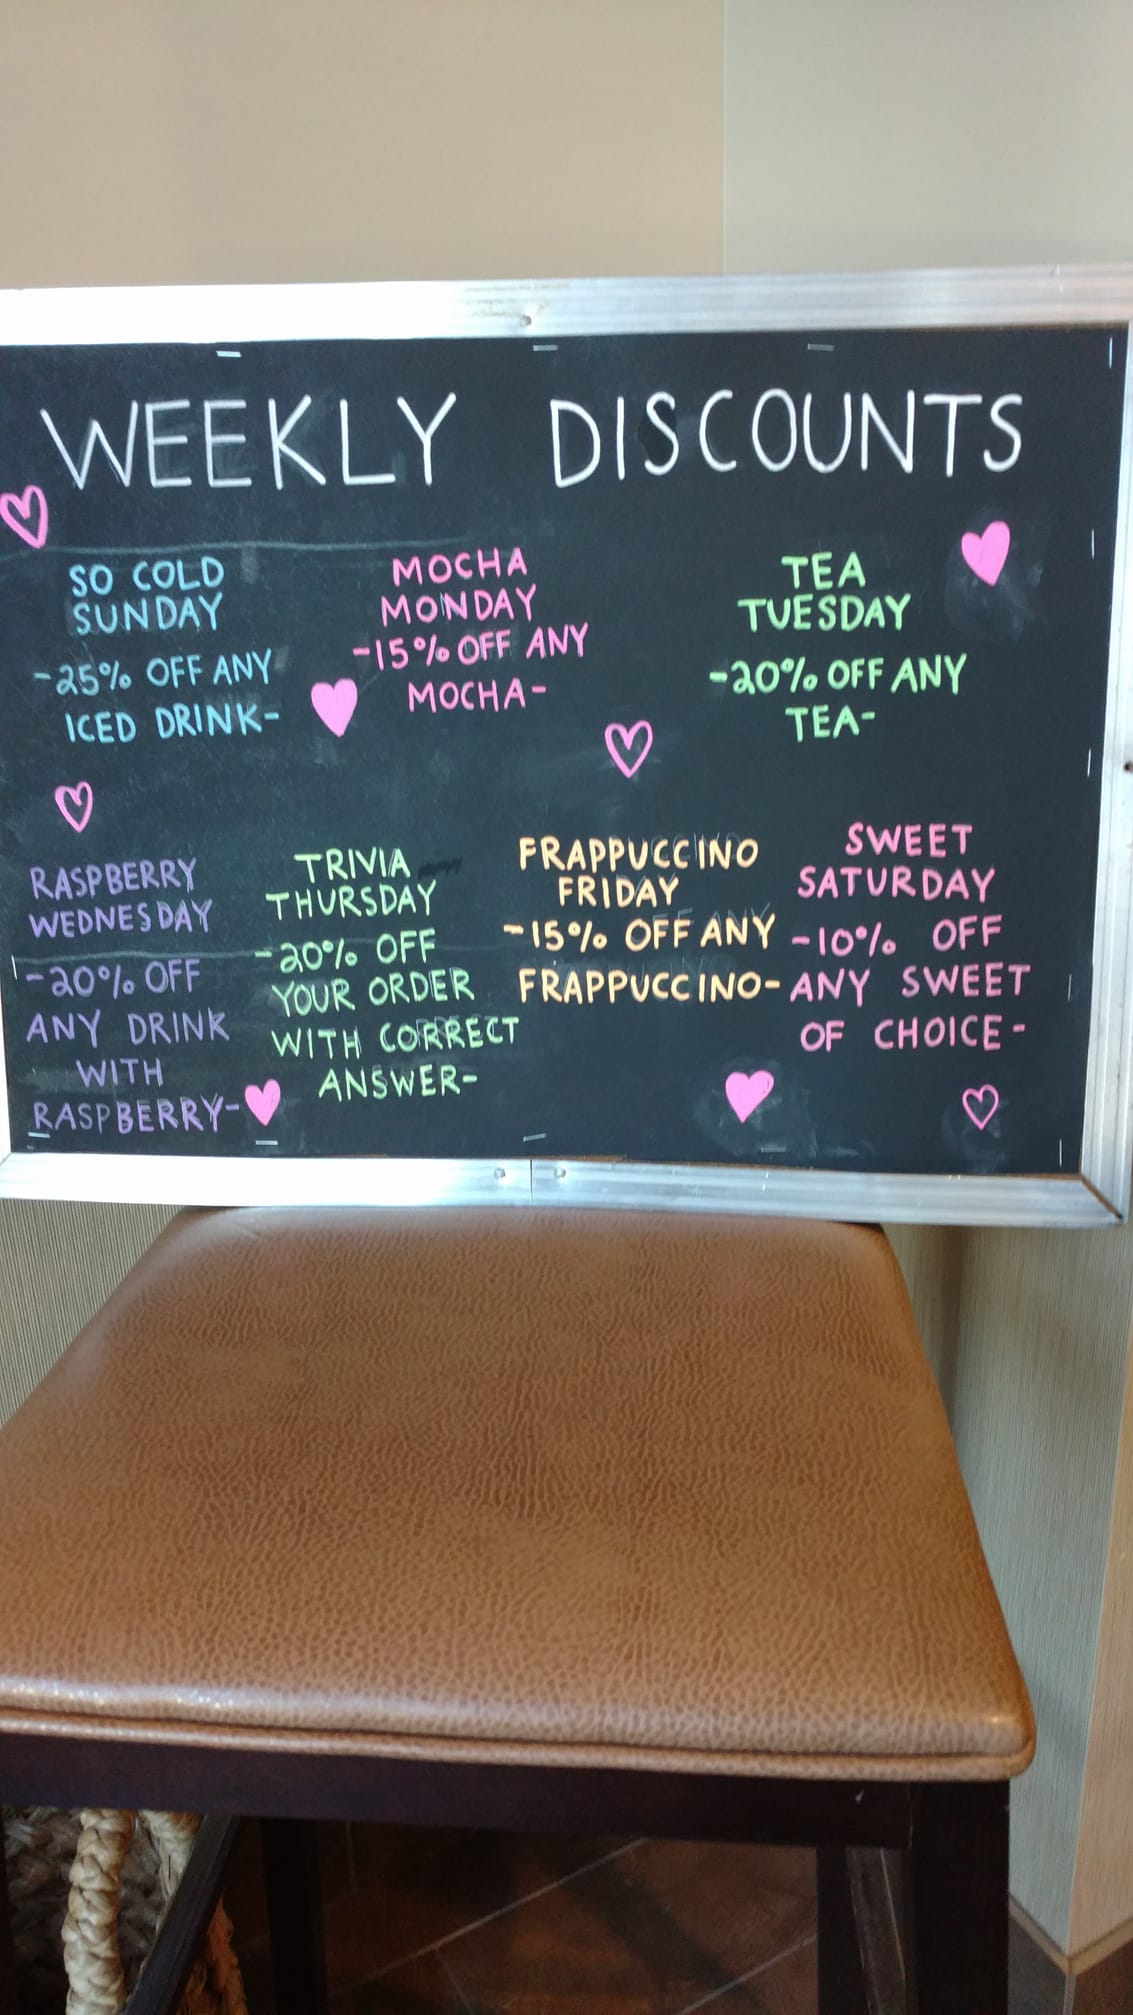 WEEKLY DISCOUNTS
SO COLD
SUNDAY
-25% OFF ANY
ICED DRINK-
MOCHA
MONDAY
-15% OFF ANY
MOCHA-
TEA
TUESDAY
-20% OFF ANY
TEA-
RASPBERRY
WEDNESDAY
-20% OFF
ANY DRINK
WITH
RASPBERRY-
TRIVIA
THURSDAY
-20% OFF
YOUR ORDER
WITH CORRECT
ANSWER-
FRAPPUCCINO
FRIDAY
-15% OFF ANY
FRAPPUCCINO-
SWEET
SATURDAY
-10% OFF
ANY SWEET
OF CHOICE-